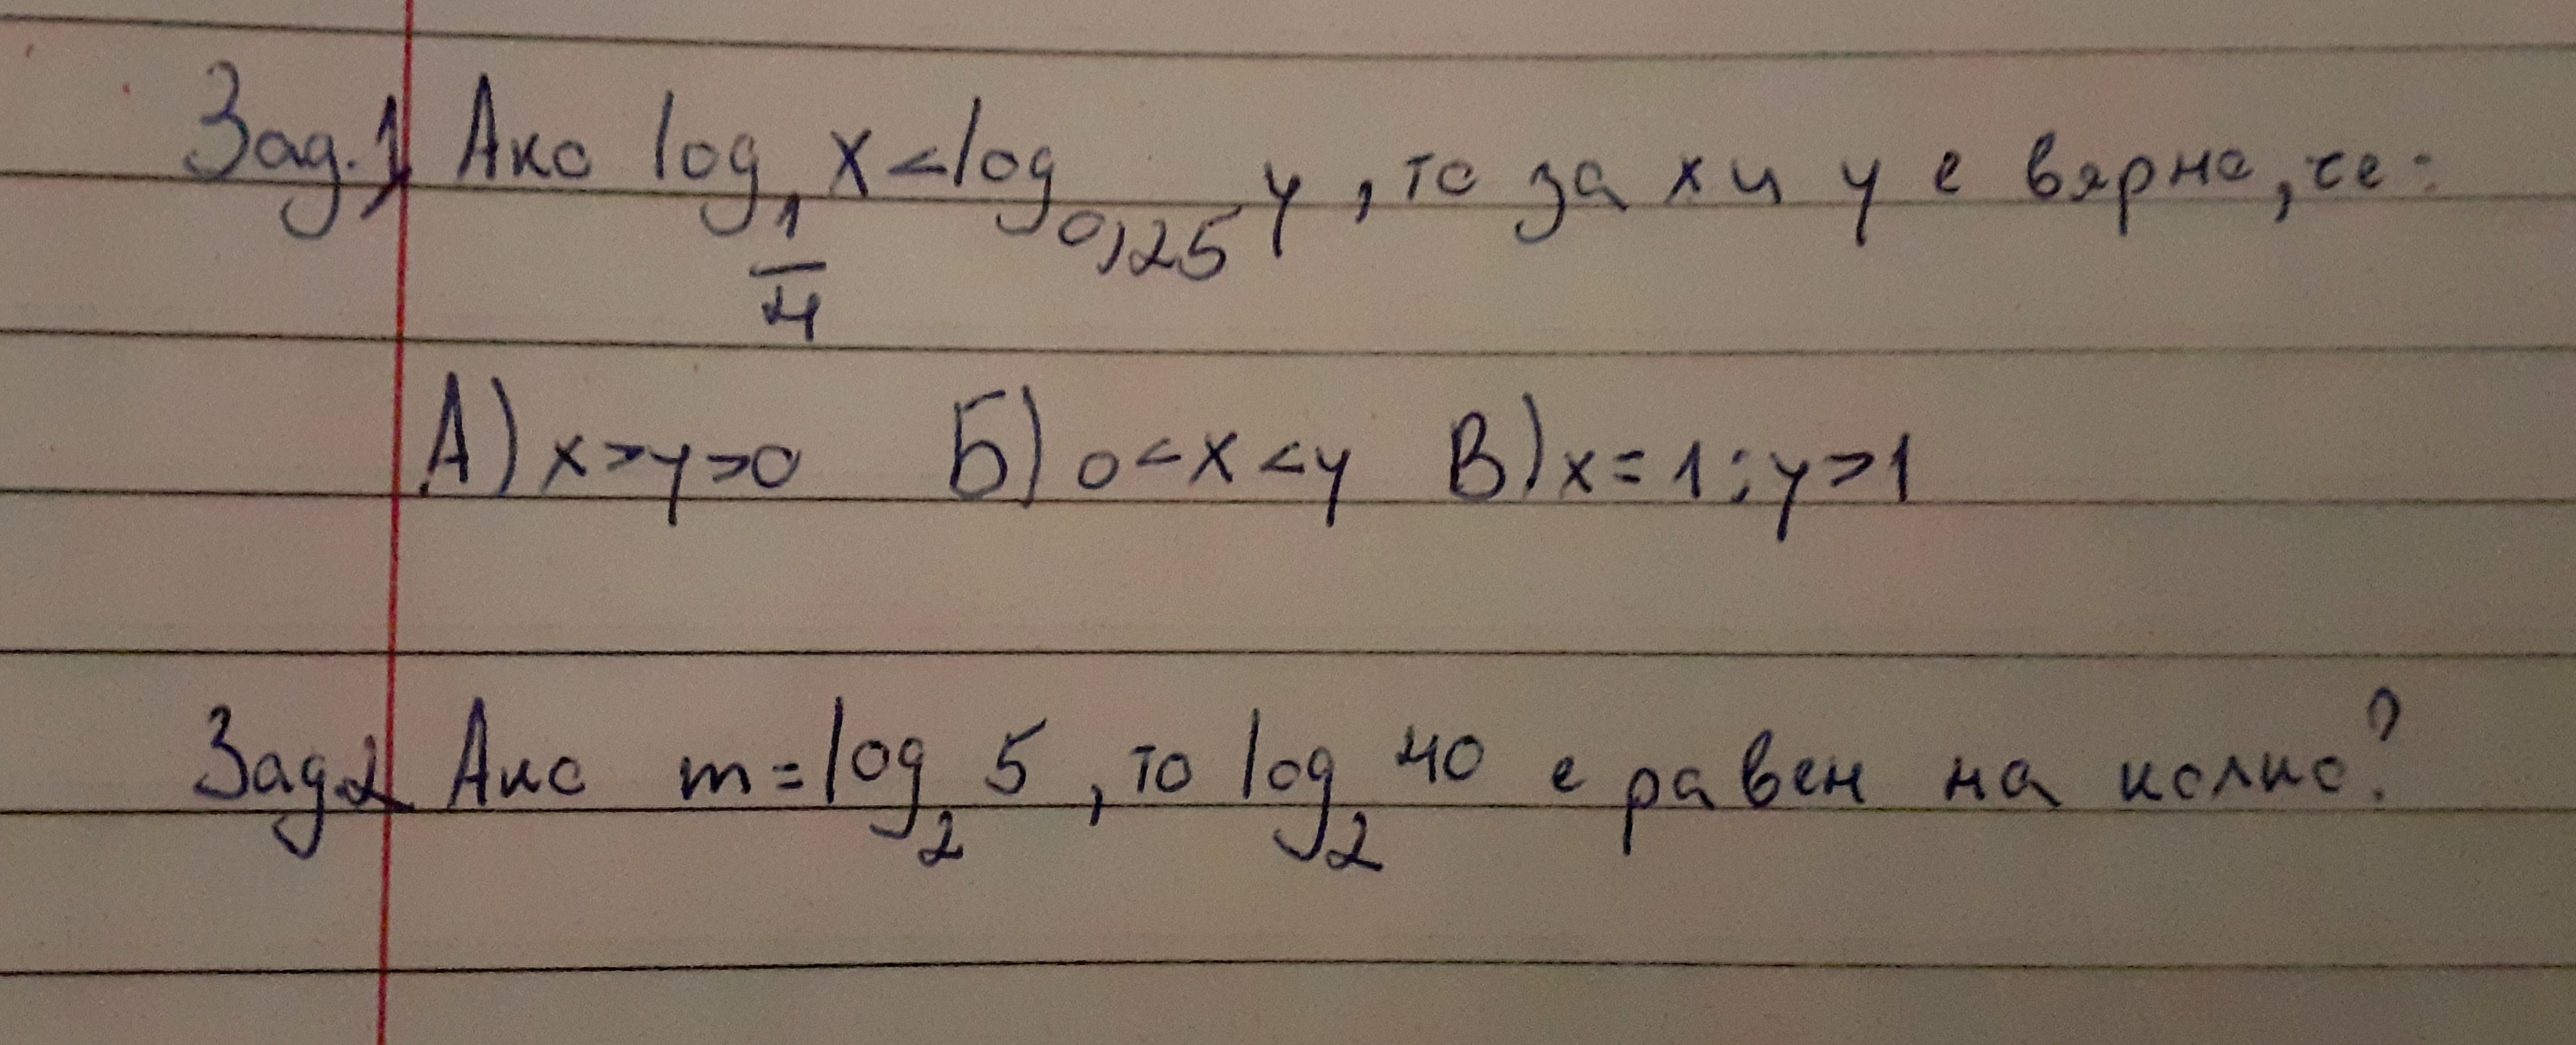 Зад.1 Ако log 1/4 x < log 0,25 y, то за x и y е вярно, че:
А) x > y > 0 Б) 0 < x < y В) x = 1; y > 1
Зад2 Ако m = log₂ 5, то log₂ 40 е равен на колко?